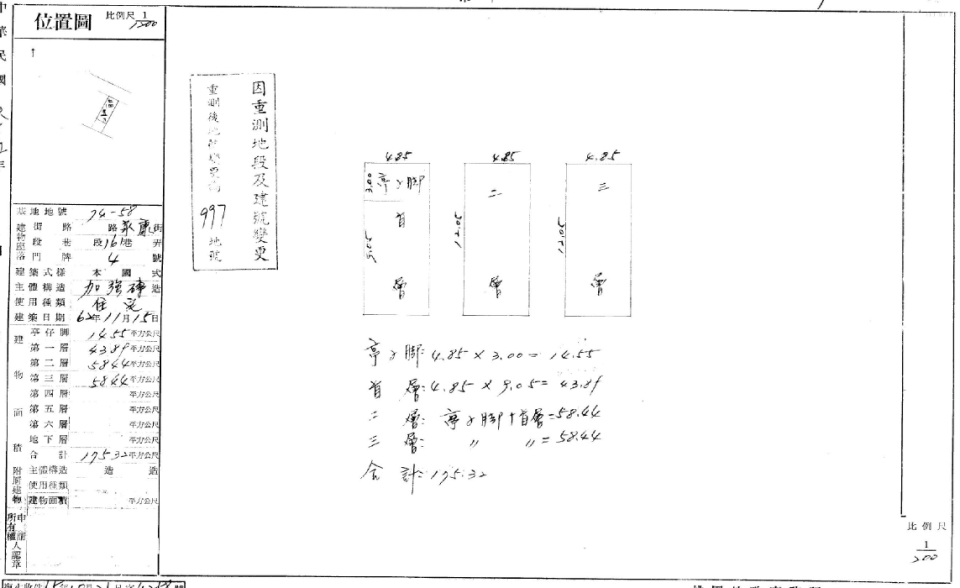 位置圖 比例尺 1/1500
因重測地段及建號變更
重測後地號變更為 997 地號
基地地號 74-58
建物座落 街路 路永康街
段巷弄 段161巷 弄
門牌 4 號
建築式樣 本國式
主體構造 加強磚造
使用種類 住宅
建築日期 62年11月15日
建物面積
亭仔腳 14.55 平方公尺
第一層 43.89 平方公尺
第二層 58.44 平方公尺
第三層 58.44 平方公尺
第四層 平方公尺
第五層 平方公尺
第六層 平方公尺
地下層 平方公尺
合計 175.32 平方公尺
附屬建物 主體構造 造 造
使用種類
建物面積 平方公尺
4.85 4.85 4.85
3.00 亭子腳
首層 9.05
二層 12.05
三層 12.05
亭子腳: 4.85 × 3.00 = 14.55
首層: 4.85 × 9.05 = 43.89
二層: 亭子腳+首層 = 58.44
三層: 〃 〃 = 58.44
合計: 175.32
比例尺
1/200